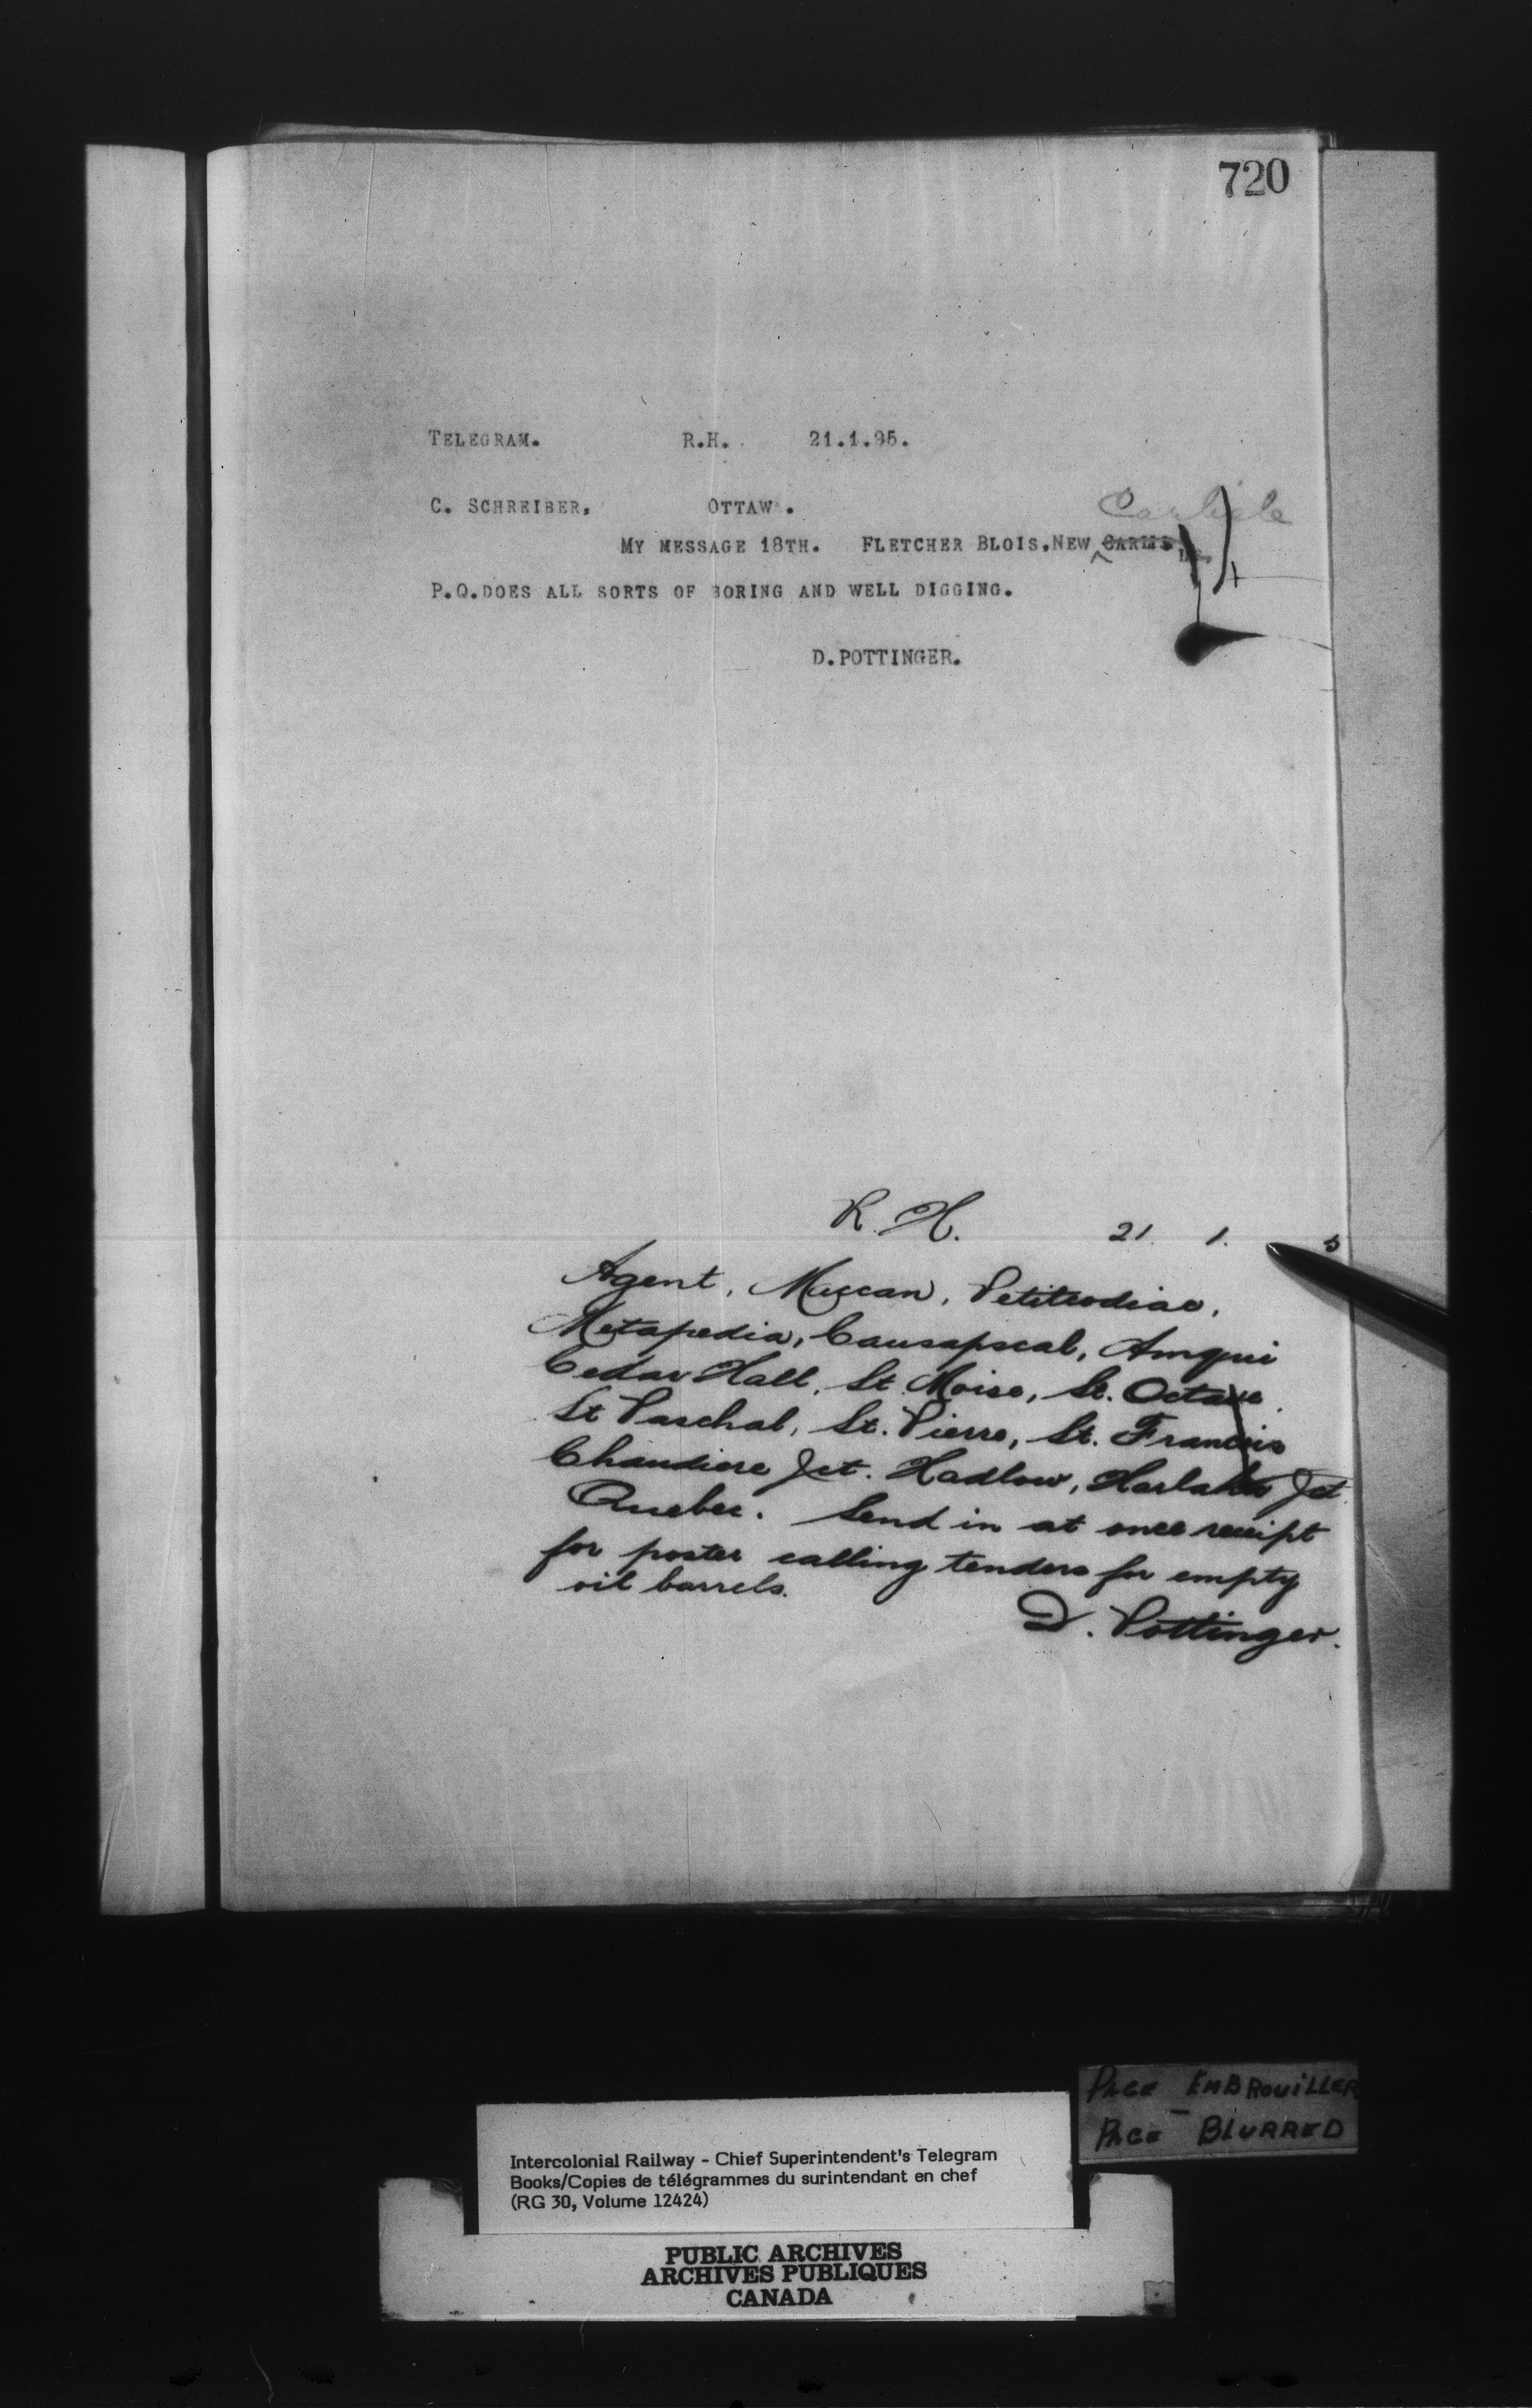 720
TELEGRAM. R.H. 21.1.95.
C. SCHREIBER, OTTAW .
Carlisle
MY MESSAGE 18TH. FLETCHER BLOIS.NEW CARLIS LE.
P.Q.DOES ALL SORTS OF BORING AND WELL DIGGING.
D.POTTINGER.
R. H. 21. 1. 5
Agent, Maccan, Petitcodiac,
Metapedia, Causapscal, Amqui
Cedar Hall, St. Moise, St. Octave.
St Paschal, St. Pierre, St. Francois
Chaudiere Jct. Hadlow, Harlaka Jct.
Quebec. Send in at once receipt
for poster calling tenders for empty
oil barrels.
D. Pottinger.
PAGE EMBROUILLER
PAGE - BLURRED
Intercolonial Railway - Chief Superintendent's Telegram
Books/Copies de télégrammes du surintendant en chef
(RG 30, Volume 12424)
PUBLIC ARCHIVES
ARCHIVES PUBLIQUES
CANADA